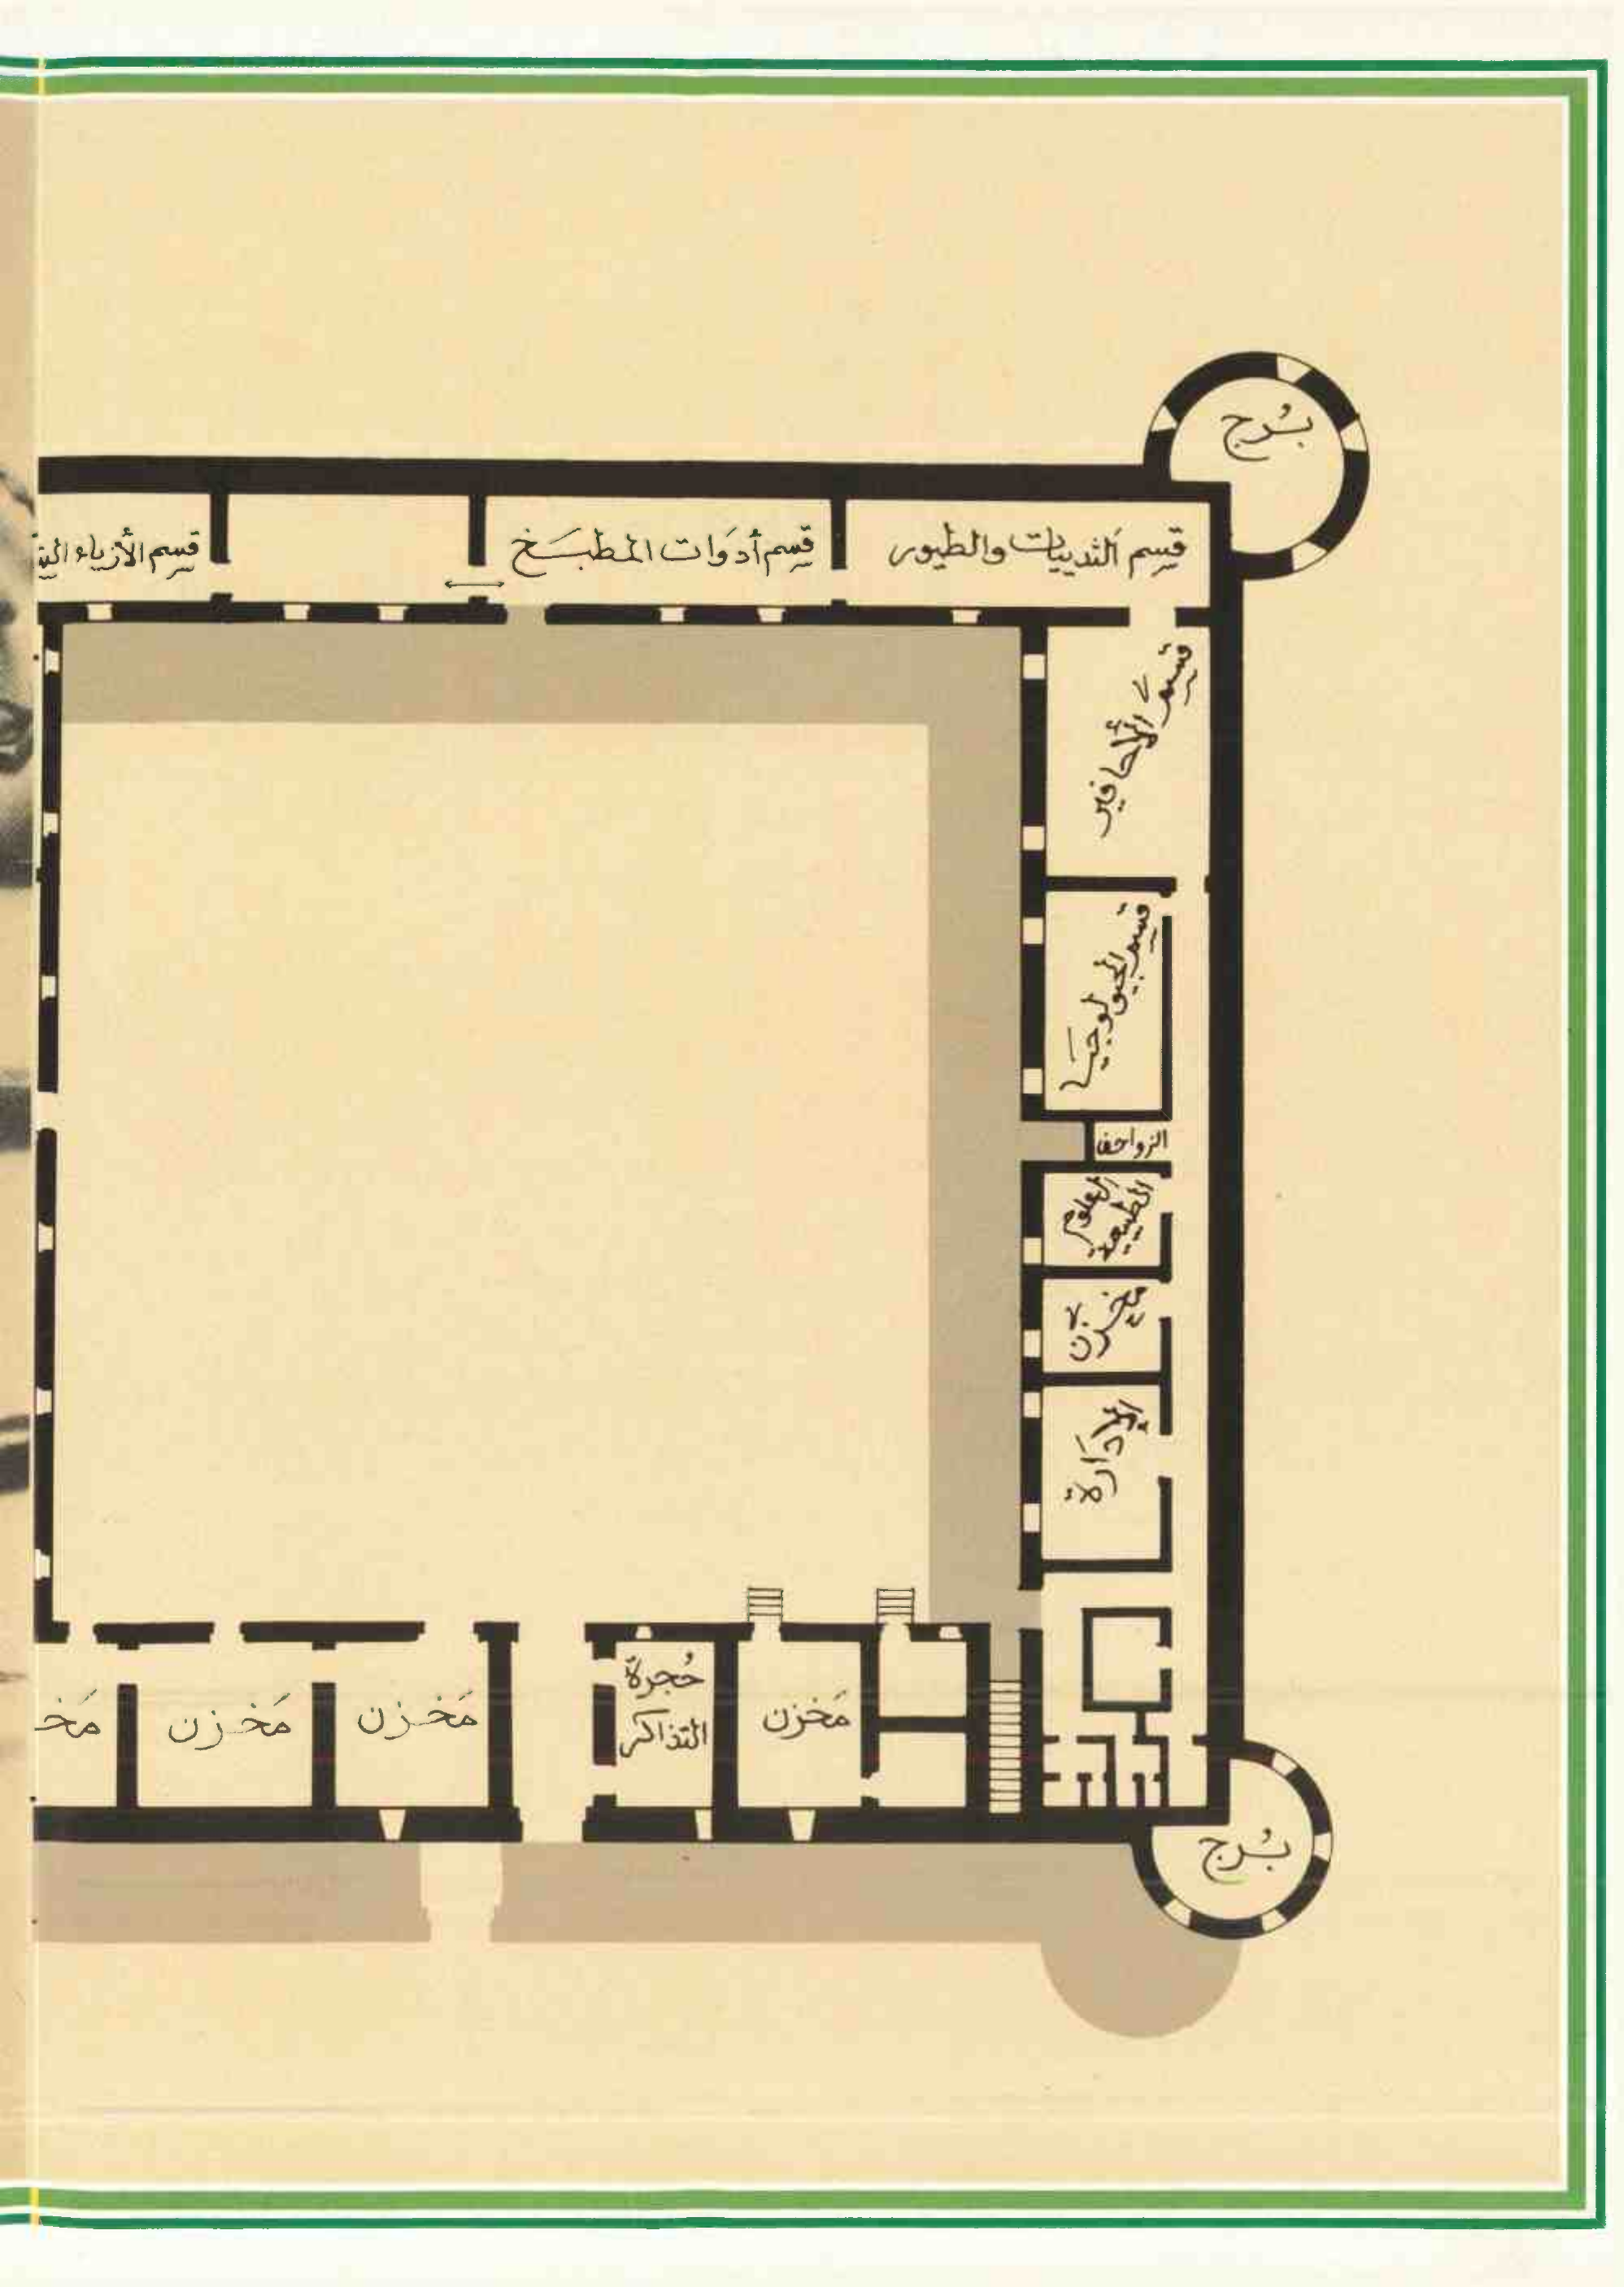 برُج
قسِم الثدييات والطيور
قسِم أدَوات المطبَخ
قسِم الأزياء
قسِم الأحافير
قسِم الجيولوجيَا
الزواحف
العلوم
الطبيعية
مخزن
الإدَارة
حُجرة
التذاكر
مَخزن
مَخزن
مَخزن
مَخ
برُج